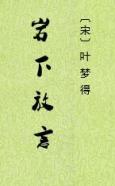 〔宋〕叶梦得
岩下放言